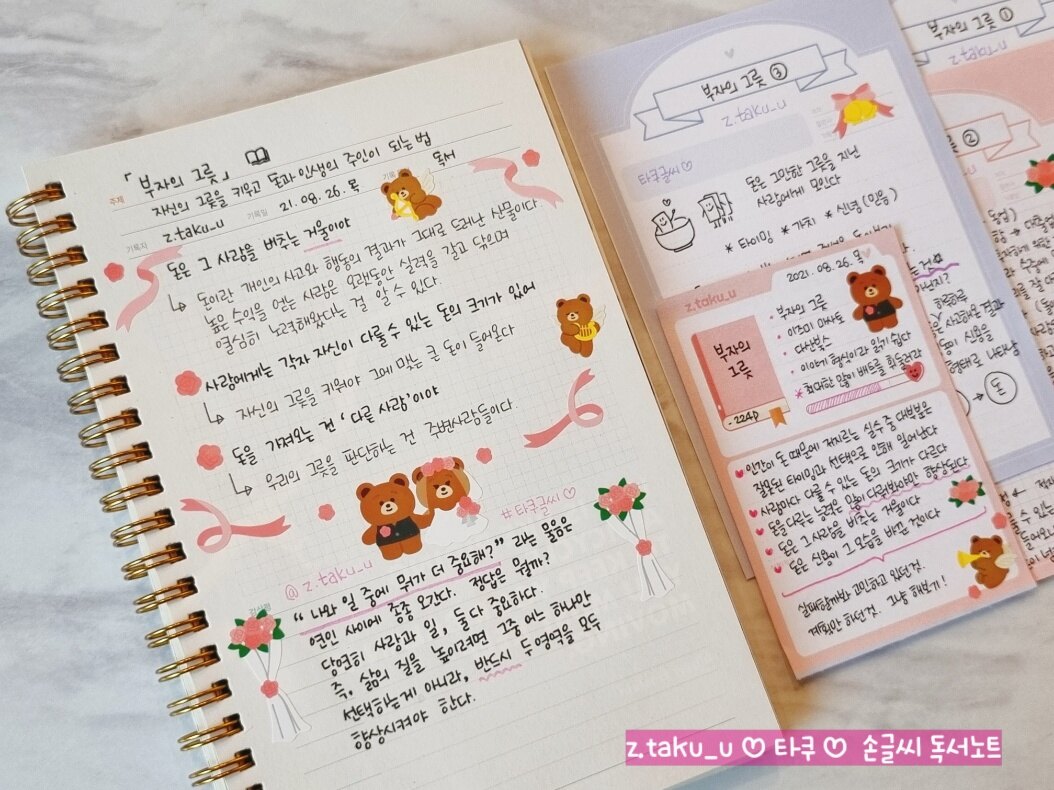 「부자의 그릇」
주제
자신의 그릇을 키우고 돈과 인생의 주인이 되는 법
기록자 z.taku_u 기록일 21.08.26.목 독서
돈은 그 사람을 비추는 거울이야
↳ 돈이란 개인의 사고와 행동의 결과가 그대로 드러난 산물이다
높은 수익을 얻는 사람은 오랫동안 실력을 갈고 닦으며
열심히 노력해왔다는 걸 알 수 있다.
사람에게는 각자 자신이 다룰 수 있는 돈의 크기가 있어
↳ 자신의 그릇을 키워야 그에 맞는 큰 돈이 들어온다
돈을 가져오는 건 '다른 사람'이야
↳ 우리의 그릇을 판단하는 건 주변사람들이다.
#타쿠글씨♡
@z.taku_u
"나와 일 중에 뭐가 더 중요해?" 라는 물음은
연인 사이에 종종 오간다. 정답은 뭘까?
당연히 사랑과 일, 둘 다 중요하다.
즉, 삶의 질을 높이려면 그중 어느 하나만
선택하는게 아니라, 반드시 두 영역을 모두
향상시켜야 한다.
부자의 그릇 ③
z.taku_u
타쿠글씨♡
돈은 그만한 그릇을 지닌
사람에게 모인다
* 타이밍 * 가치 * 신념(믿음)
부자의 그릇 ①
z.taku_u
②
돈
z.taku_u
2021.08.26.목
부자의
그릇
-224p
• 부자의 그릇
• 이즈미 마사토
• 다산북스
• 이야기 형식이라 읽기 쉽다
* 최대한 많이 배트를 휘둘러라
인간이 돈 때문에 저지르는 실수 중 대부분은
잘못된 타이밍과 선택으로 인해 일어난다
사람마다 다룰 수 있는 돈의 크기가 다르다
돈을 다루는 능력은 많이 다뤄봐야만 향상된다
돈은 그 사람을 비추는 거울이다
돈은 신용이 그 모습을 바꾼 것이다
실패할까봐 고민하고 있던것.
계획만 하던것. 그냥 해보기!
z.taku_u ♡ 타쿠 ♡ 손글씨 독서노트